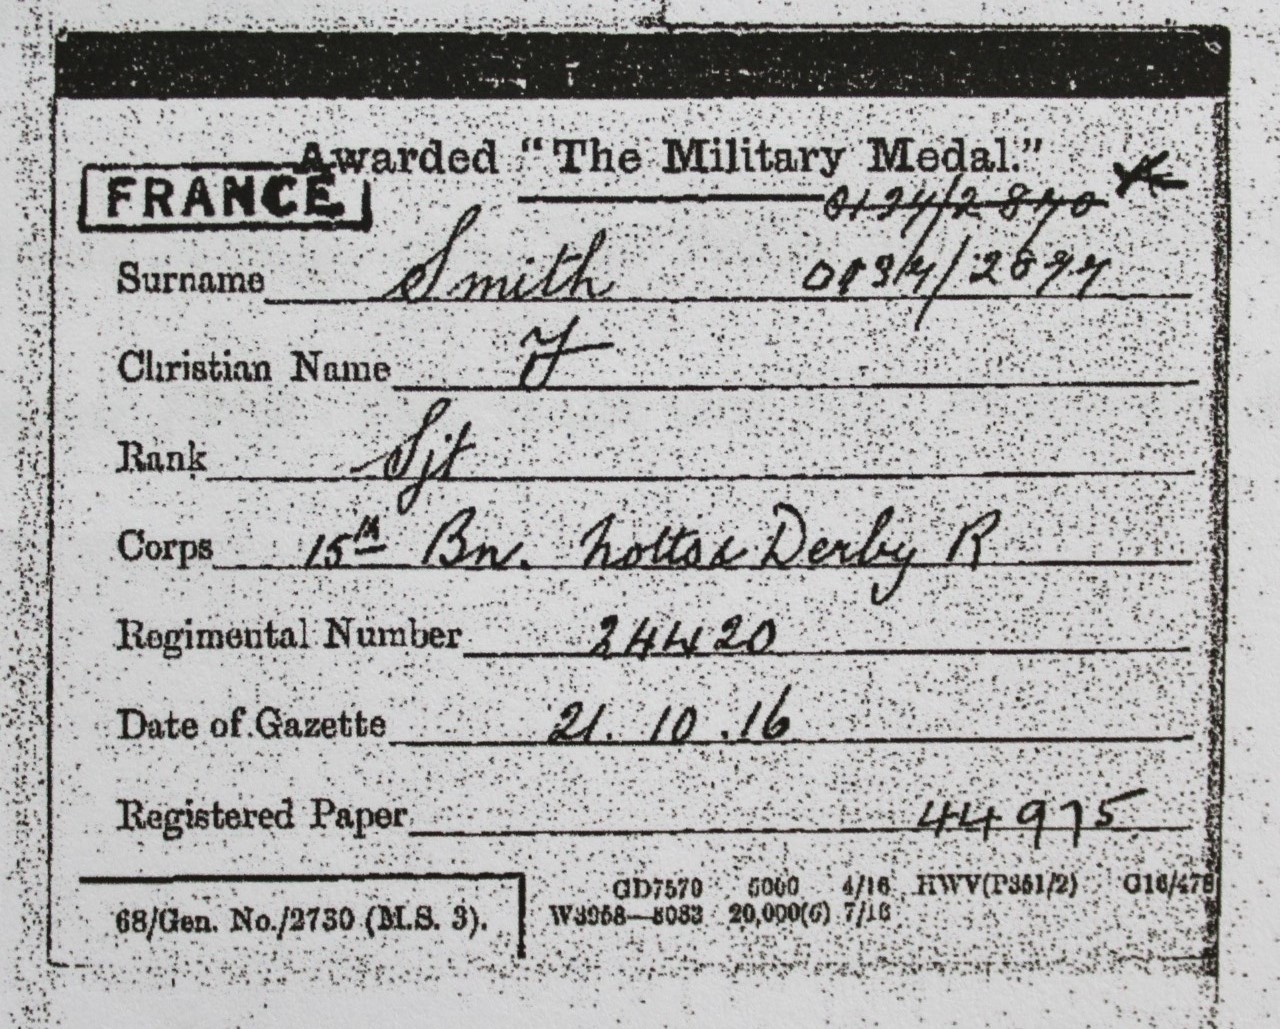 Awarded "The Military Medal."
FRANCE
0134/2840
Surname Smith 0134/2677
Christian Name J
Rank Sjt
Corps 15th Bn. Notts & Derby R
Regimental Number 24420
Date of Gazette 21.10.16
Registered Paper 44975
68/Gen. No./2730 (M.S. 3).
GD7570 5000 4/16 HWV(P351/2) G16/478
W3958—8083 20,000(6) 7/16